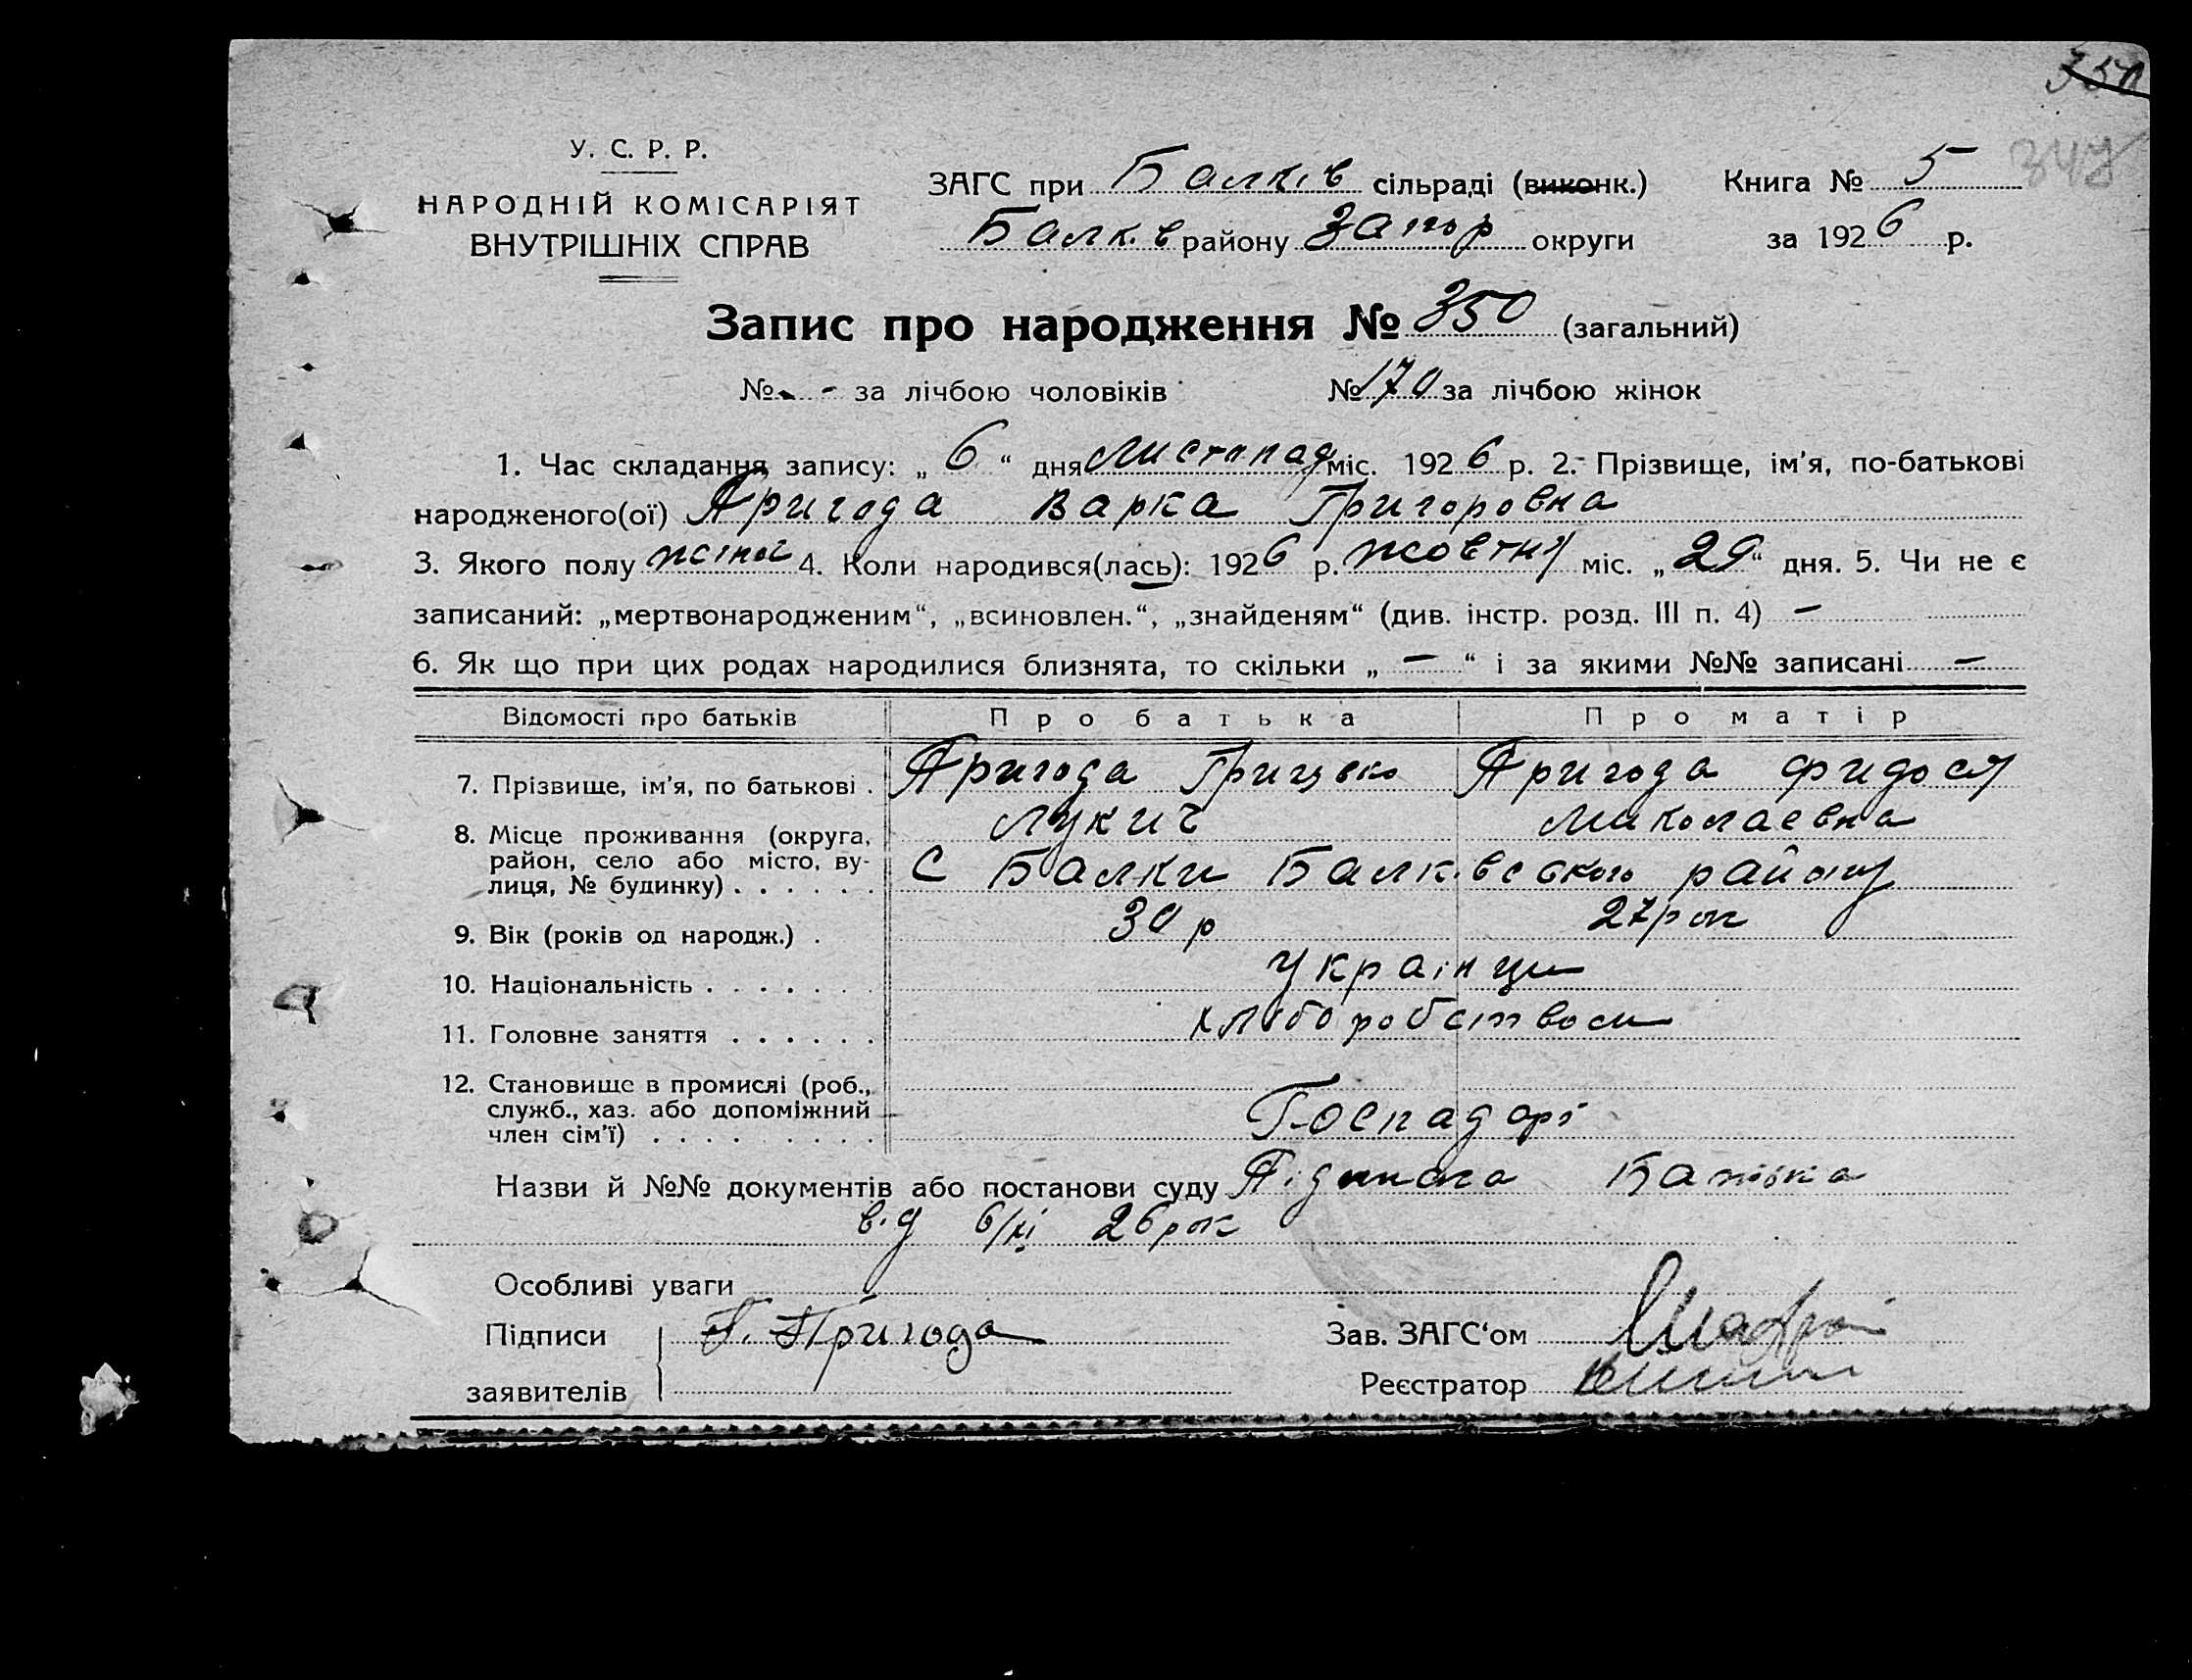 350
347
У. С. Р. Р.
НАРОДНІЙ КОМІСАРІЯТ
ВНУТРІШНІХ СПРАВ
ЗАГС при Балків сільраді (виконк.) Книга № 5
Балк. в району Запор округи за 1926 р.
Запис про народження № 350 (загальний)
№ - за лічбою чоловіків № 170 за лічбою жінок
1. Час складання запису: „ 6 “ дня Листопад міс. 1926 р. 2. Прізвище, ім’я, по-батькові
народженого(ої) Пригода Варка Григоровна
3. Якого полу жіноч 4. Коли народився(лась): 1926 р. жовтня міс. „ 29 “ дня. 5. Чи не є
записаний: „мертвонародженим“, „всиновлен.“, „знайденям“ (див. інстр. розд. III п. 4) —
6. Як що при цих родах народилися близнята, то скільки „ — “ і за якими №№ записані —
Відомості про батьків Про батька Про матір
7. Прізвище, ім’я, по батькові . Пригода Грицько Пригода Фидося
Лукич Миколаевна
8. Місце проживання (округа,
район, село або місто, ву-
лиця, № будинку) . . . . . . С Балки Балк.вського району
9. Вік (років од народж.) . 30 р 27 рок
10. Національність . . . . . . . українци
11. Головне заняття . . . . . . хліборобством
12. Становище в промислі (роб.,
служб., хаз. або допоміжний
член сім’ї) . . . . . . . . . Господарі
Назви й №№ документів або постанови суду П.дписка
в.д 6/XI 26 рок
Особливі уваги
Підписи Г. Пригода Зав. ЗАГС‘ом
заявителів Реєстратор